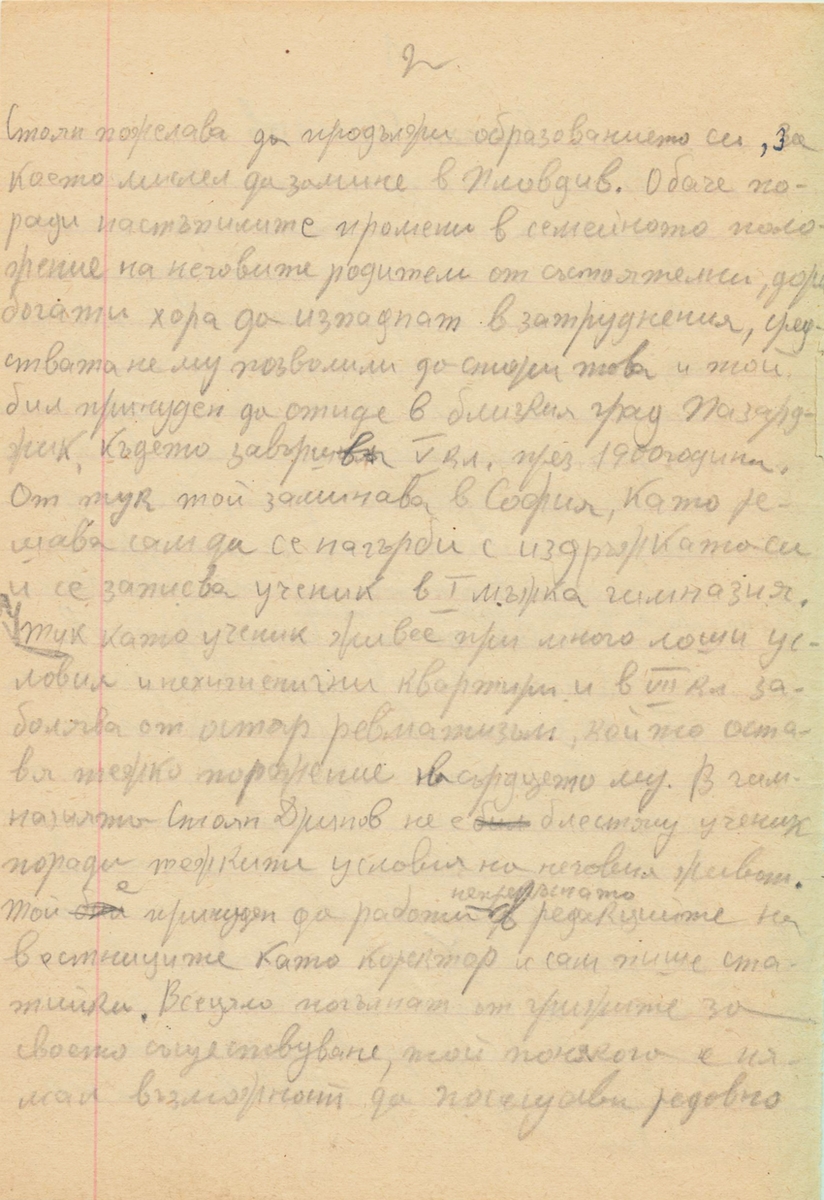 2.
Стоян пожелава да продължи образованието си, за
което мислел да замине в Пловдив. Обаче по-
ради настъпилите промени в семейното поло-
жение на неговите родители от състоятелни, дори
богати хора да изпаднат в затруднения, сред-
ствата не му позволили да стори това и той
бил принуден да отиде в близкия град Пазард-
жик, където завършва V кл. през 1900 година.
От тук той заминава в София, като ре-
шава сам да се нагърби с издръжката си
и се записва ученик в I мъжка гимназия.
Тук като ученик живее при много лоши ус-
ловия и нехигиенични квартири и в VII кл. за-
болява от остър ревматизъм, който оста-
вя тежко поражение на сърцето му. В гим-
назията Стоян Дринов не е бил блестящ ученик
поради тежките условия на неговия живот.
непрекъснато
Той е принуден да работи в редакциите на
вестниците като коректор и сам пише ста-
тийки. Всецяло погълнат от грижите за
своето съществуване, той понякога е ня-
мал възможност да посещава редовно